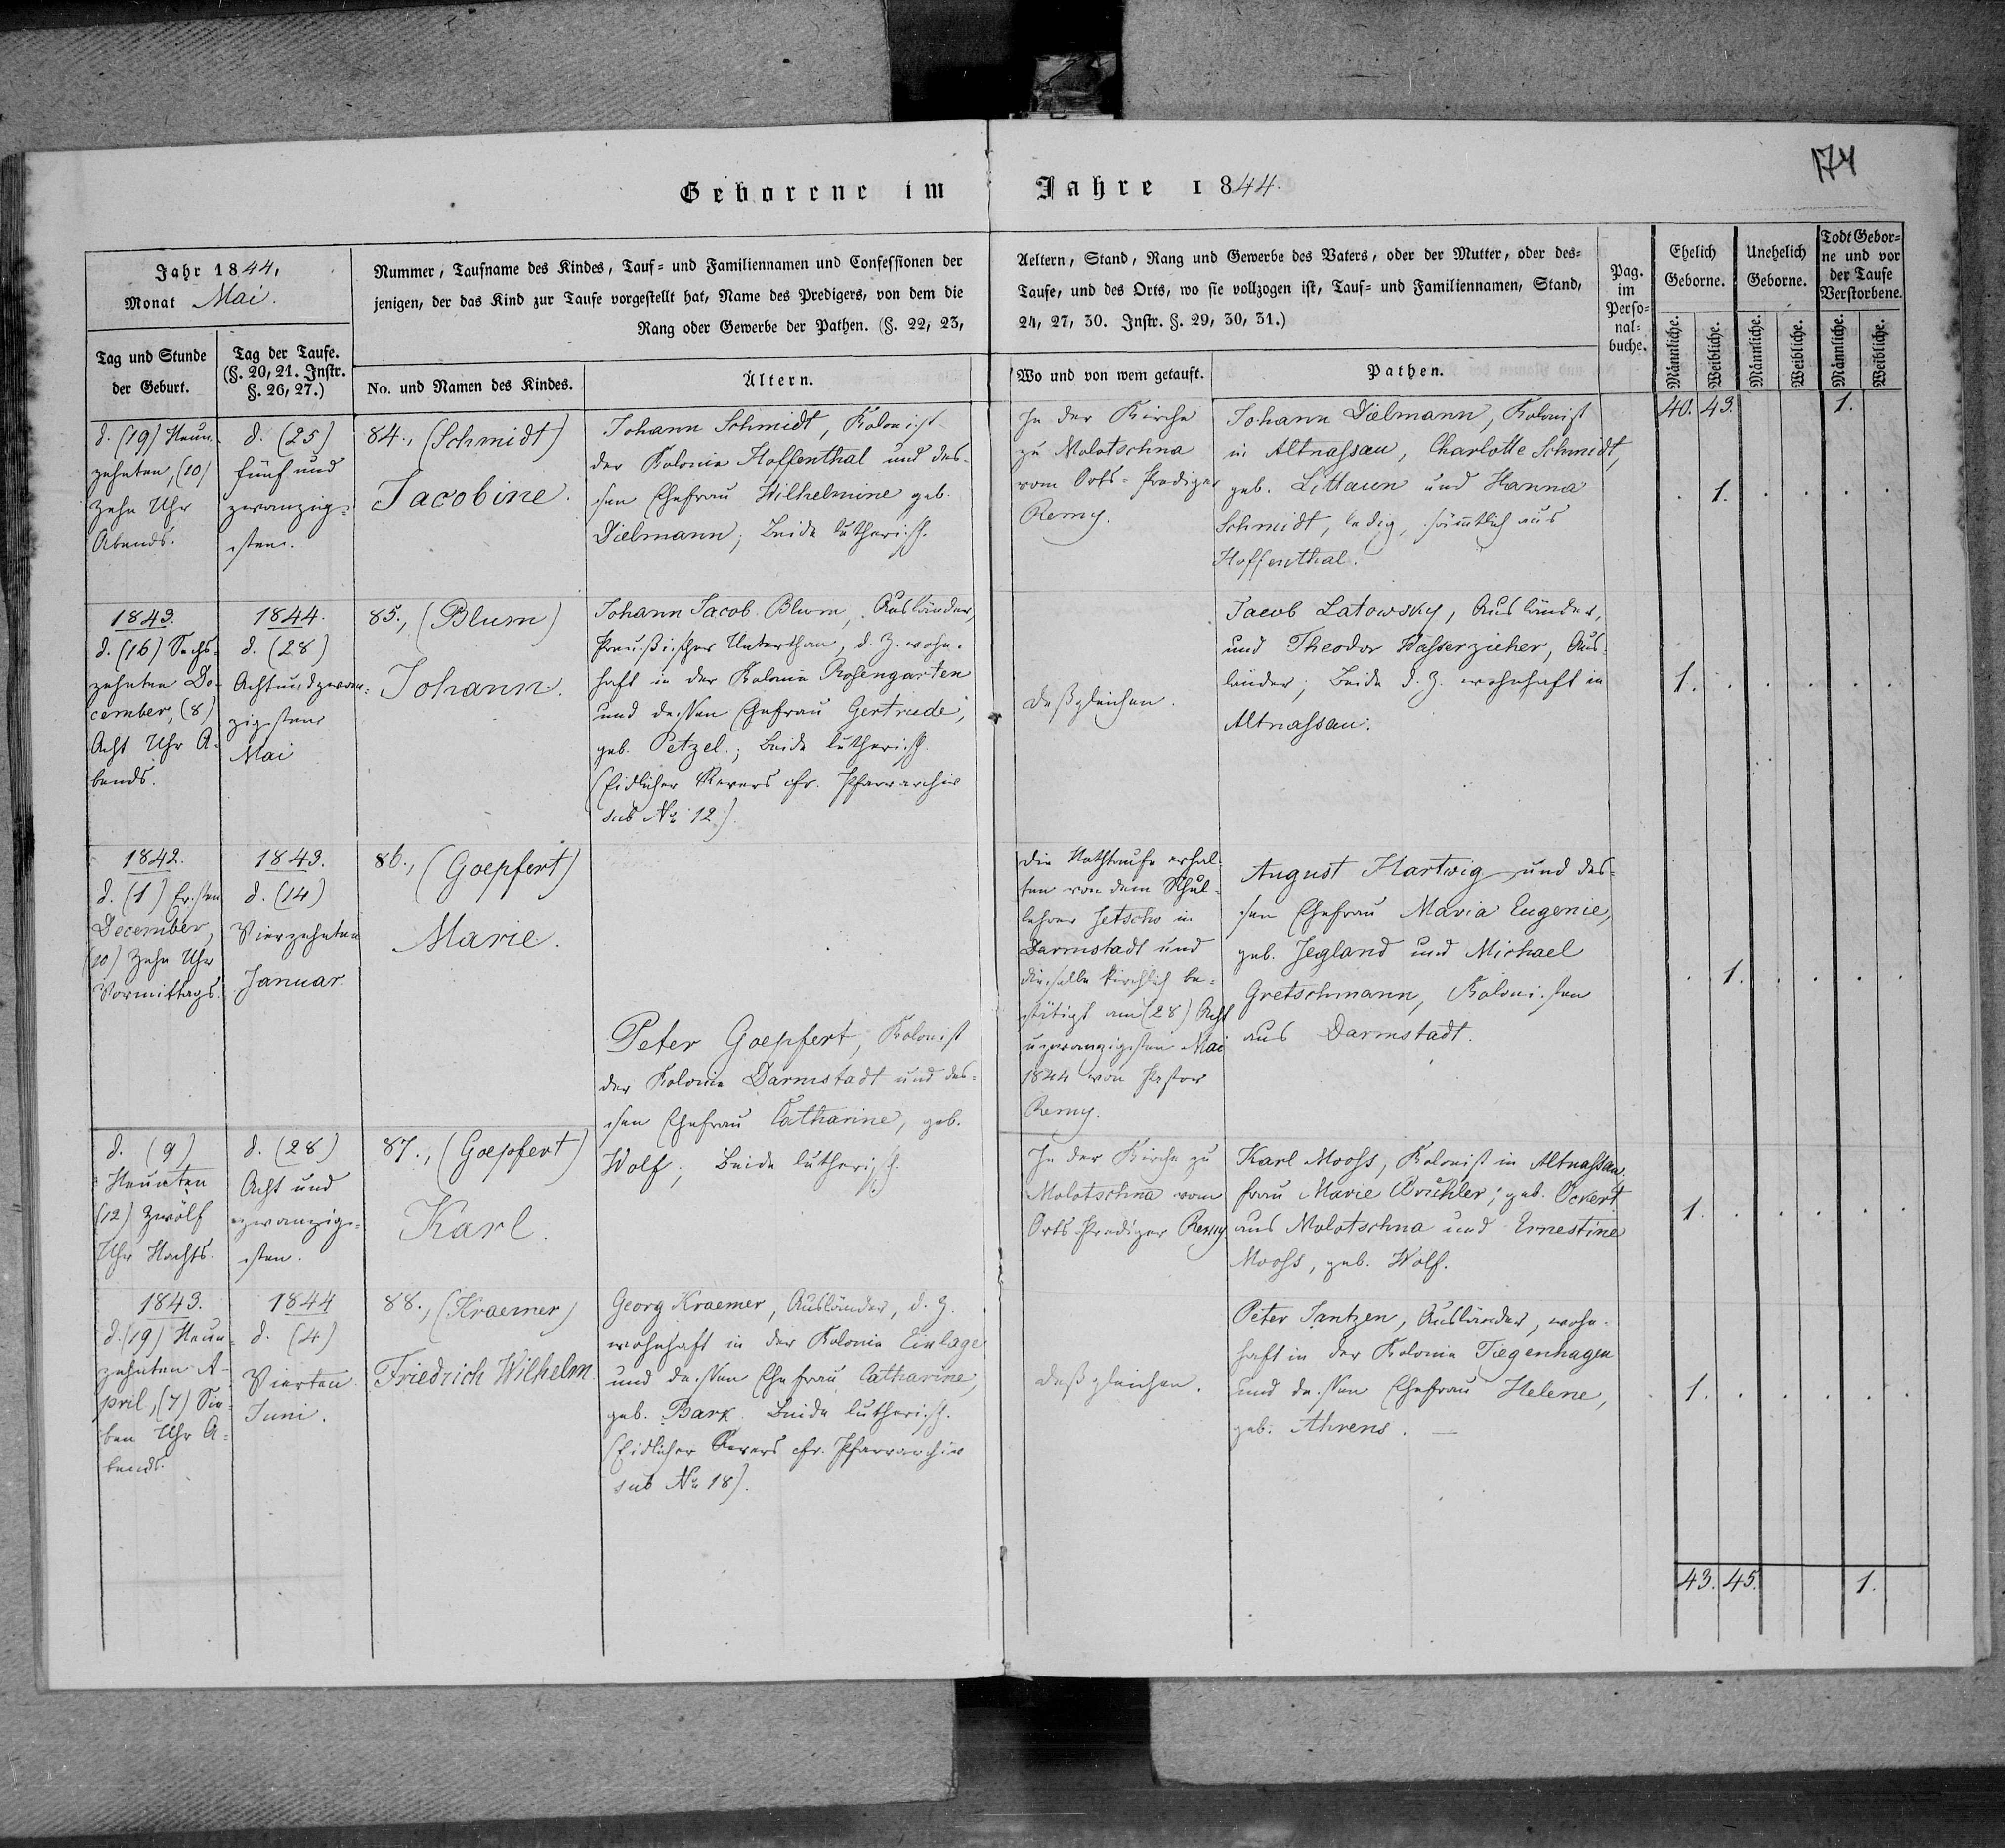 174
Geborene im Jahre 1844.
Jahr 1844,
Monat Mai.
Tag und Stunde
der Geburt.
Tag der Taufe.
(§. 20, 21. Instr.
§. 26, 27.)
Nummer, Taufname des Kindes, Tauf- und Familiennamen und Confessionen der
jenigen, der das Kind zur Taufe vorgestellt hat, Name des Predigers, von dem die
Rang oder Gewerbe der Pathen. (§. 22, 23,
No. und Namen des Kindes.
Ältern.
Aeltern, Stand, Rang und Gewerbe des Vaters, oder der Mutter, oder des-
Taufe, und des Orts, wo sie vollzogen ist, Tauf- und Familiennamen, Stand,
24, 27, 30. Instr. §. 29, 30, 31.)
Wo und von wem getauft.
Pathen.
Pag.
im
Perso-
nal-
buche.
Ehelich
Geborne.
Unehelich
Geborne.
Todt Gebor-
ne und vor
der Taufe
Verstorbene.
Männliche.
Weibliche.
Männliche.
Weibliche.
Männliche.
Weibliche.
40. 43. 1.
d. (19) Neun-
zehnten, (10)
Zehn Uhr
Abends.
d. (25)
fünf und
zwanzig-
sten.
84., (Schmidt)
Jacobine.
Johann Schmidt, Kolonist
der Kolonie Hoffenthal und des-
sen Ehefrau Wilhelmine geb.
Dielmann; Beide lutherisch.
In der Kirche
zu Molotschna
vom Orts-Prediger
Remy.
Johann Dielmann, Kolonist
in Altnassau, Charlotte Schmidt,
geb. Littaun und Hanna
Schmidt, ledig, sämtlich aus
Hoffenthal.
. 1. . . . .
1843.
d. (16) Sechs-
zehnten De-
cember, (8)
Acht Uhr A-
bends.
1844.
d. (28)
Achtundzwan-
zigsten
Mai
85., (Blum)
Johann.
Johann Jacob Blum, Ausländer,
Preußischer Unterthan, d. Z. wohn-
haft in der Kolonie Rosengarten
und dessen Ehefrau Gertrude,
geb. Petzel.; Beide lutherisch.
(Eidlicher Revers cfr. Pfarrarchiv
sub No 12).
deßgleichen.
Jacob Latowsky, Ausländer,
und Theodor Wasserzieher, Aus-
länder; Beide d. Z. wohnhaft in
Altnassau.
1. . . . . .
1842.
d. (1) Ersten
December,
(10) Zehn Uhr
Vormittags.
1843.
d. (14)
Vierzehnten
Januar
86., (Goepfert)
Marie.
Peter Goepfert, Kolonist
der Kolonie Darmstadt und des-
sen Ehefrau Catharine, geb.
Wolf; Beide lutherisch.
die Nothtaufe erhal-
ten von dem Schul-
lehrer Jetscho in
Darmstadt und
dieselbe kirchlich be-
stätigt am (28) Acht
u. zwanzigsten Mai
1844 von Pastor
Remy.
August Hartwig und des-
sen Ehefrau Maria Eugenie,
geb. Jegland und Michael
Gretschmann, Kolonisten
aus Darmstadt.
. 1. . . . .
d. (9)
Neunten
(12) Zwölf
Uhr Nachts.
d. (28)
Acht und
zwanzig-
sten.
87., (Goepfert)
Karl.
In der Kirche zu
Molotschna vom
Orts-Prediger Remy
Karl Mooss, Kolonist in Altnassau,
frau Marie geb. Ockert
aus Molotschna und Ernestine
Mooss, geb. Wolf.
1. . . . . .
1843.
d. (19) Neun-
zehnten A-
pril, (7) Sie-
ben Uhr A-
bends.
1844
d. (4)
Vierten
Juni.
88., (Kraemer)
Friedrich Wilhelm.
Georg Kraemer, Ausländer, d. Z.
wohnhaft in der Kolonie Einlage
und dessen Ehefrau Catharine,
geb. Bark. Beide lutherisch.
(Eidlicher Revers cfr. Pfarrarchiv
sub No 18).
deßgleichen.
Peter Jantzen, Ausländer, wohn-
haft in der Kolonie Tiegenhagen
und dessen Ehefrau Helene,
geb. Ahrens. —
1. . . . . .
43. 45. 1.